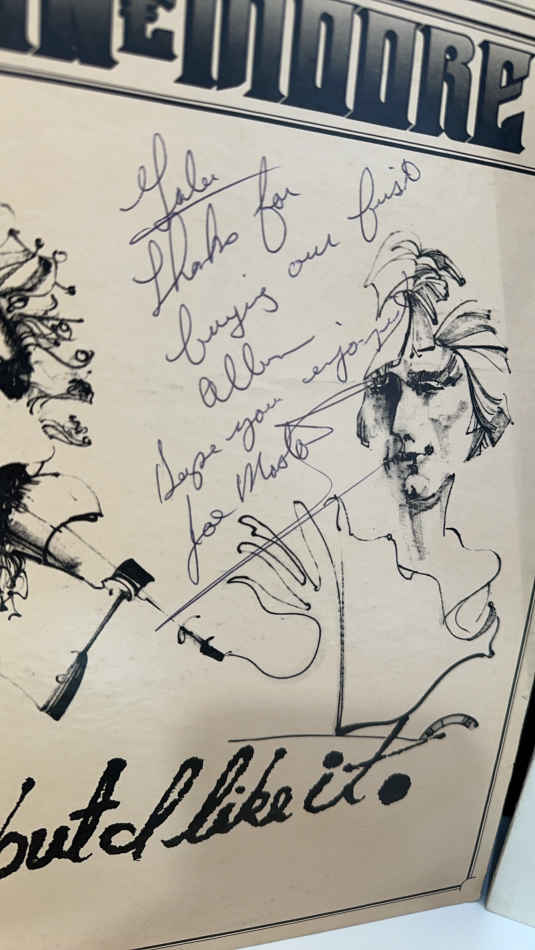 NE MOORE
Thanks for
buying our first
Album
Hope you enjoy it
Joe
but d like it.